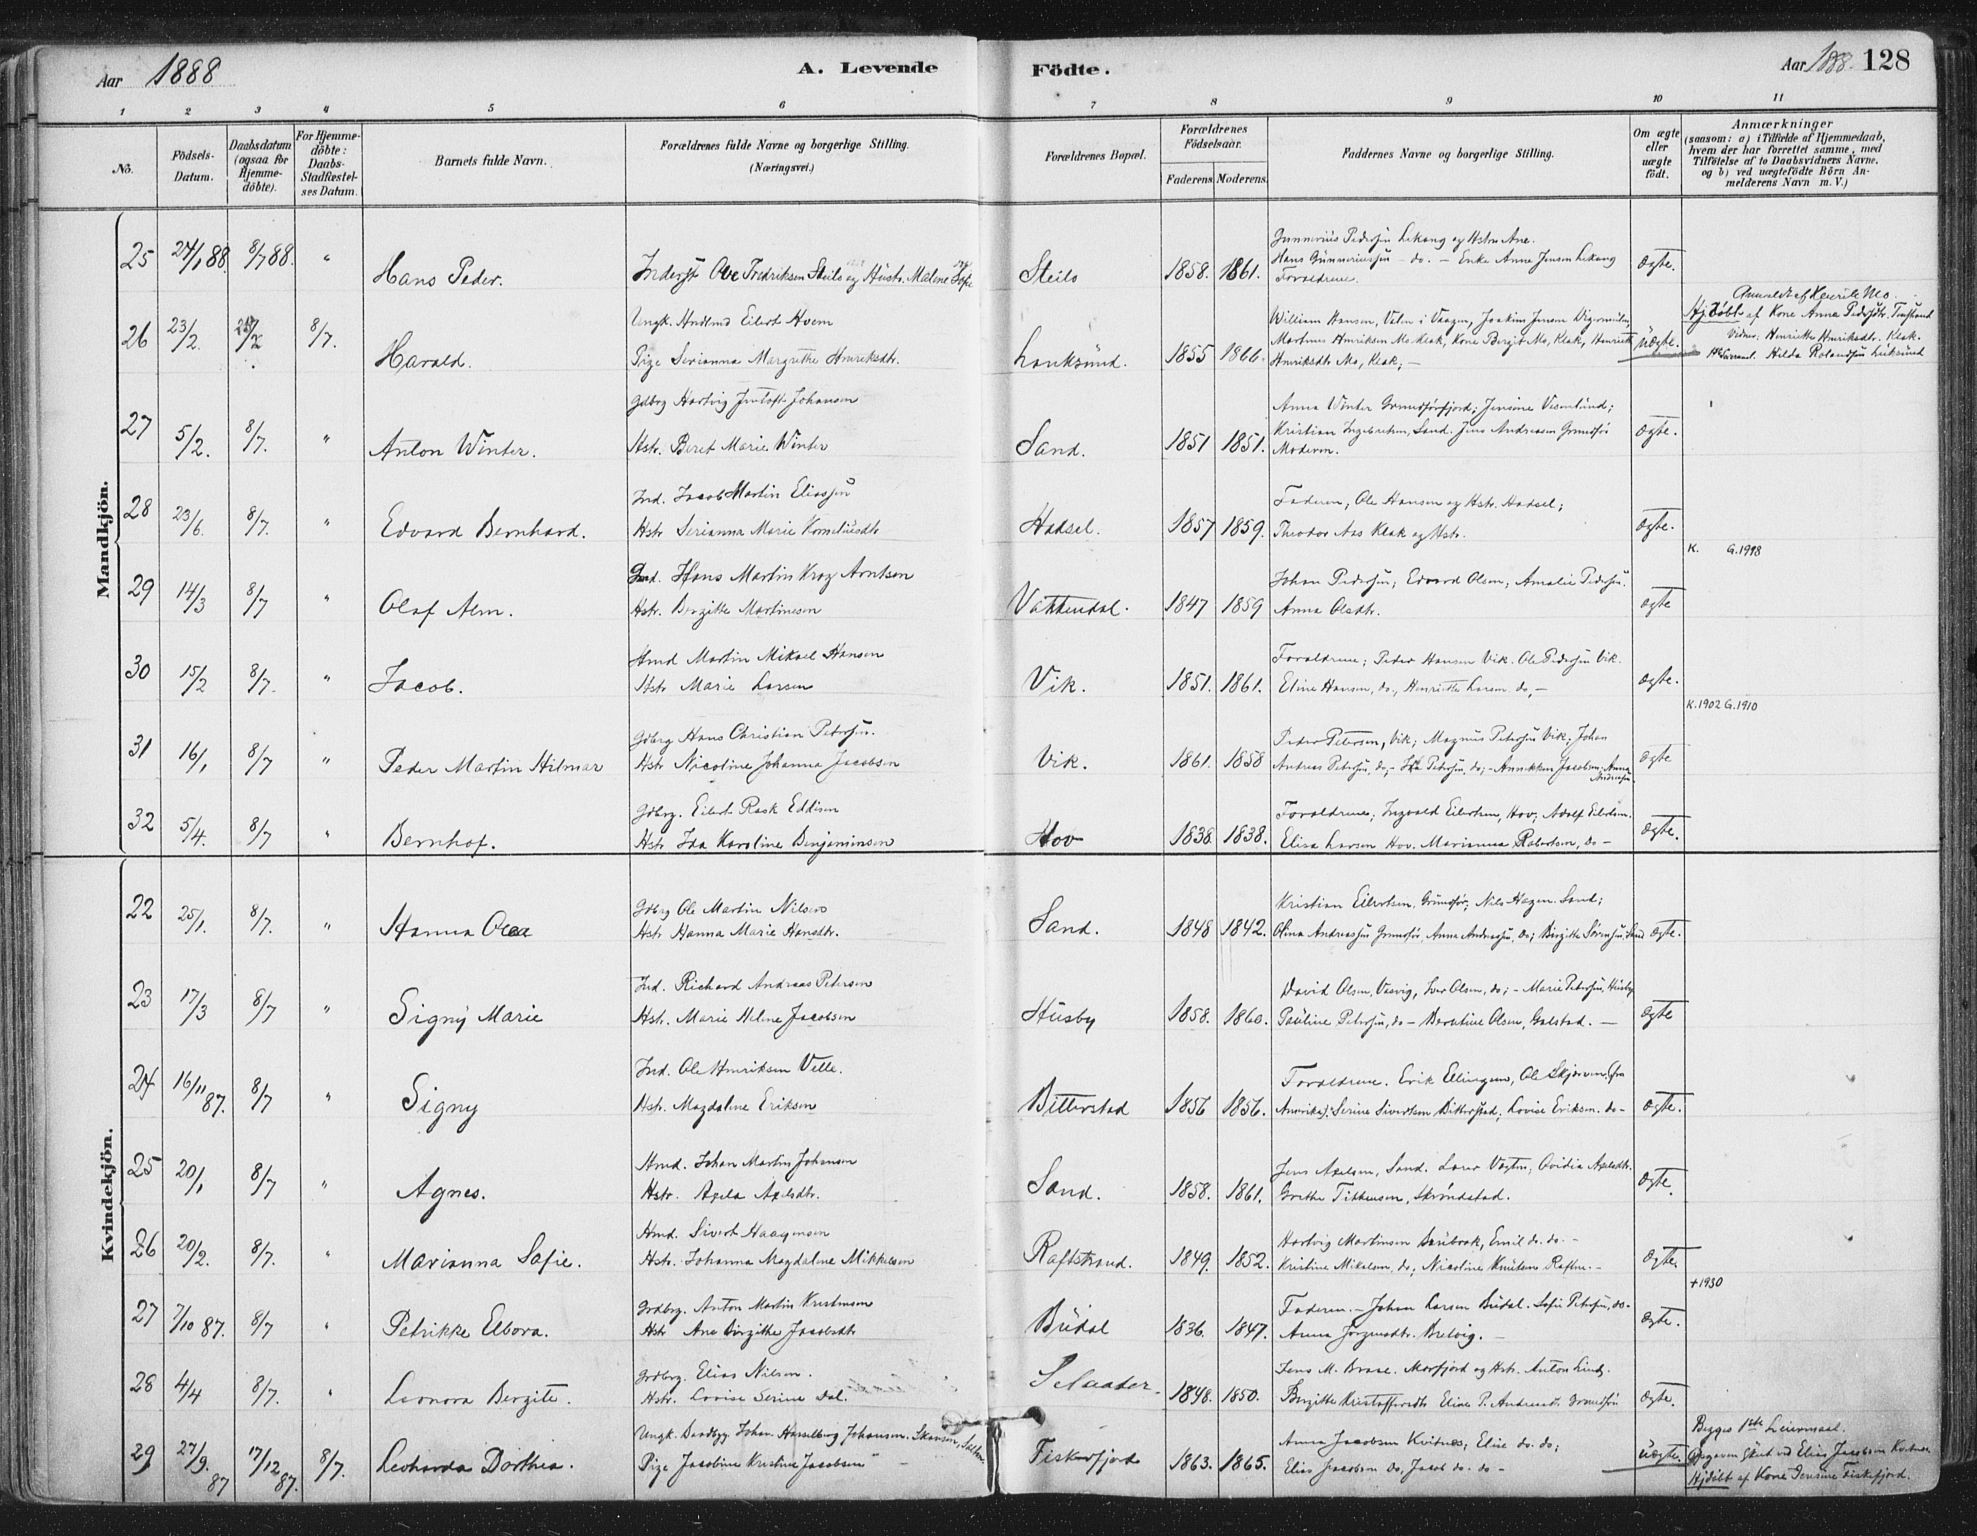 Aar 1888
A. Levende
Födte.
Aar 1888. 128
1 2 3 4 5 6 7 8 9 10 11
No.
Födsels-Datum.
Daabsdatum (ogsaa for Hjemme-döbte).
For Hjemme-döbte: Daabs-Stadfæstel-ses Datum.
Barnets fulde Navn.
Forældrenes fulde Navne og borgerlige Stilling. (Næringsvei.)
Forældrenes Bopæl.
Forældrenes Födselsaar.
Faderens. Moderens.
Faddernes Navne og borgerlige Stilling.
Om ægte eller uægte födt.
Anmærkninger
(saasom: a) i Tilfælde af Hjemmedaab,
hvem der har forrettet samme, med
Tilföielse af to Daabsvidners Navne,
og b) ved uægtefödte Börn An-
melderens Navn m. V.)
Mandkjön.
25 24/1 88. 8/7 88. " Hans Peder. Inderst Ove Fredriksen Steilo og Hustr. Malene Steilo 1858. 1861. ægte.
Gunnerius Pedersen Lekang og Hstr Ane.
Hans Gunneriussen do. - Enke Anne Jensen Lekang
Forældrene.
26 23/2. 8/7. Harald.
Ungk. Eilert Hvem
Pige Serianna Margrethe Henriksdtr. 1855 1866. uægte.
William Hansen,
Henriksdtr Mo, Kleak, -
Anmeldt af Henrik Mo.
Hjdöbt af Kone Anna Pedersdtr.
Vidner. Henriette Henriksdtr. Kleak.
27 5/2. 8/7. " Anton Winter.
Gdbrg Hartvig Johansen
Hstr. Beret Marie Winter Sand. 1851 1851. ægte.
Anna Winter Grundförfjord; Jensine
Kristian Ingebretsen, Sand. Jens Andreasen Grundför
Moderen.
28 23/6. 8/7. " Edvard Bernhard.
Ind. Jacob Martin Eliassen
Hstr Serianna Marie Korneliusdtr Hadsel. 1857 1859. ægte.
Faderen; Ole Hansen og Hstr. Hadsel;
Theodor Aas Kleak og Hstr.
K. G.1918
29 14/3 8/7 " Olaf Alm.
Ind. Hans Martin Krog Arntsen
Hstr. Bergitte Martinesen Vattendal. 1847 1859 ægte
Johan Pedersen; Edvard Olsen; Amalie Pedersen.
Anna Olsdtr.
30 15/2 8/7. " Jacob.
Hmd Martin Mikael Hansen
Hstr Marie Larsen Vik. 1851. 1861. ægte.
Forældrene; Peder Hansen Vik. Ole Pedersen Vik.
Eline Hansen, do., Henriette Larsen do, -
K.1902 G.1910
31 16/1 8/7 " Peder Martin Hilmar
Gdbrg Hans Christian Petersen.
Hstr Nicoline Johanna Jacobsen Vik. 1861. 1858 ægte
Peder Petersen, Vik; Magnus Petersen Vik; Johan
Andreas Petersen, do, - Ida Petersen, do, - Annikken Jacobsen, Anna
Andreasen
32 5/4. 8/7 " Bernhof.
Gdbrg. Eilert Rask Eddisen
Hstr Ida Karoline Benjaminsen Hov 1838. 1838. ægte.
Forældrene; Ingvald Eilertsen, Hov, Adolf Eilertsen.
Elisa Larsen Hov. Marianna Robertsen, do -
Kvindekjön.
22 25/1. 8/7. " Hanna Olea
Gdbrg Ole Martin Nilsen
Hstr Hanna Marie Hansdtr. Sand. 1848 1842. ægte.
Kristian Eilertsen, Grundför; Nils Hagen. Sand;
Olina Andreassen Grundför, Anna Andreassen, do; Birgitte Sörensen, Sand
23 17/3 8/7 " Signy Marie
Ind. Richard Andreas Petersen
Hstr. Marie Helene Jacobsen Husby 1858. 1860. ægte
David Olsen, Vasvig, Iver Olsen, do; - Marie Petersen, Husby
Pauline Petersen, do - Berntine Olsen, Galstad. -
24 16/11 87. 8/7 " Signy
Ind. Ole Henriksen Velle.
Hstr. Magdalene Eriksen Bitterstad 1856 1856. ægte.
Forældrene. Erik Ellingsen, Ole Skjørven (fra
Amerika). Serine Sivertsen Bitterstad, Lovise Eriksen. do -
25 20/1 8/7 " Agnes.
Hmd. Johan Martin Johansen
Hstr. Axela Axelsdtr. Sand. 1858. 1861. ægte.
Jens Axelsen, Sand. Lars Vogten; Ovidia Axelsdtr.
Grethe Tikkensen, Skrøndstad.
26 20/2. 8/7. " Marianna Sofie.
Hmd. Sivert Haagensen
Hstr. Johanna Magdalene Mikkelsen Raftstrand. 1849. 1852. ægte.
Hartvig Martinsen, Emil do. do. -
Kristine Mikalsen, do, Nicoline Knutsen Raften. -
+1930
27 7/10 87. 8/7 " Petrikke Elbora.
Gdbrg. Anton Martin Kristensen
Hstr Ane Birgithe Jacobsdtr Budal 1836. 1847. ægte.
Faderen. - Johan Larsen Budal. Sofie Petersen, do -
Anna Jörgensdtr. Brelvig. -
28 4/4 8/7. " Leonora Bergite.
Gdbrg. Elias Nilsen.
Hstr. Lovise Serine Dal. 1848. 1850. ægte.
Jens M. Brase. Morfjord og Hstr. Anton Lind;
Birgitte Kristoffersdtr Eline P. Andreasd. Grundför
29 27/9. 87 17/12 87. 8/7. Leoharda Dorthea.
Ungk. Johan Hasselberg Johansen. Skansen, Salten.
Pige Jacobine Kristine Jacobsen Fiskerfjord 1863. 1865. uægte.
Anna Jacobsen Kvitnes; Elise do. do;
Elias Jacobsen do, Jacob do. do -
Begges 1ste Leiermaal.
Opgaven skeet ved Elias Jacobsen Kvitnes
Hjdöbt af Kone Jensine Fiskefjord.